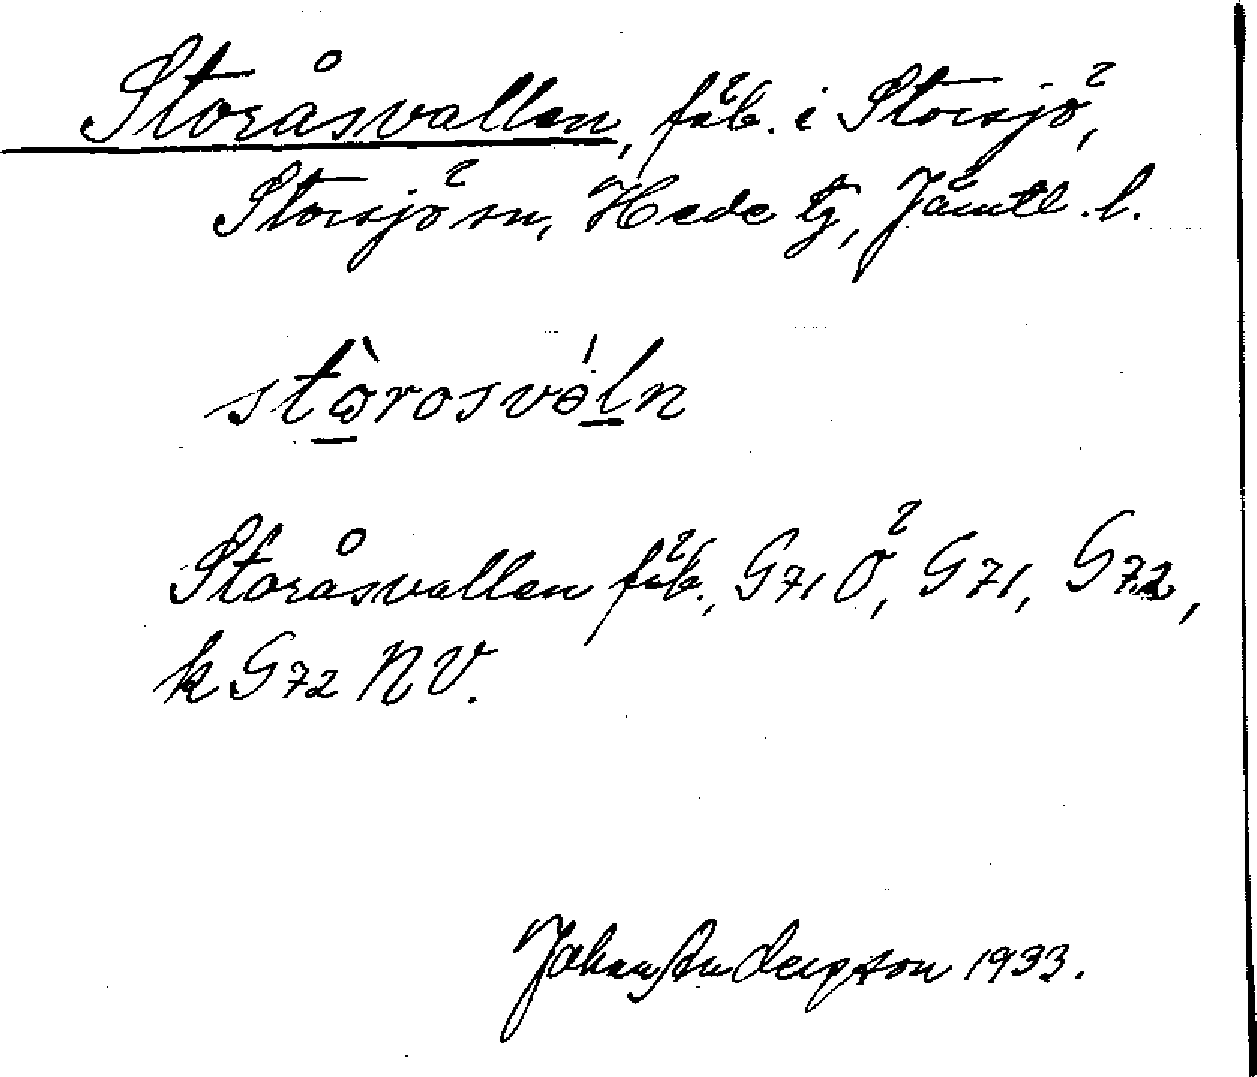 Storåsvallen, fäb. i Storsjö,
Storsjö sn, Hede tg, Jämtl. l.
stɷ̀rosvə́ln
Storåsvallen fäb., G71 Ö, G71, G72,
k G72 NV.
Johan Anderzon 1933.